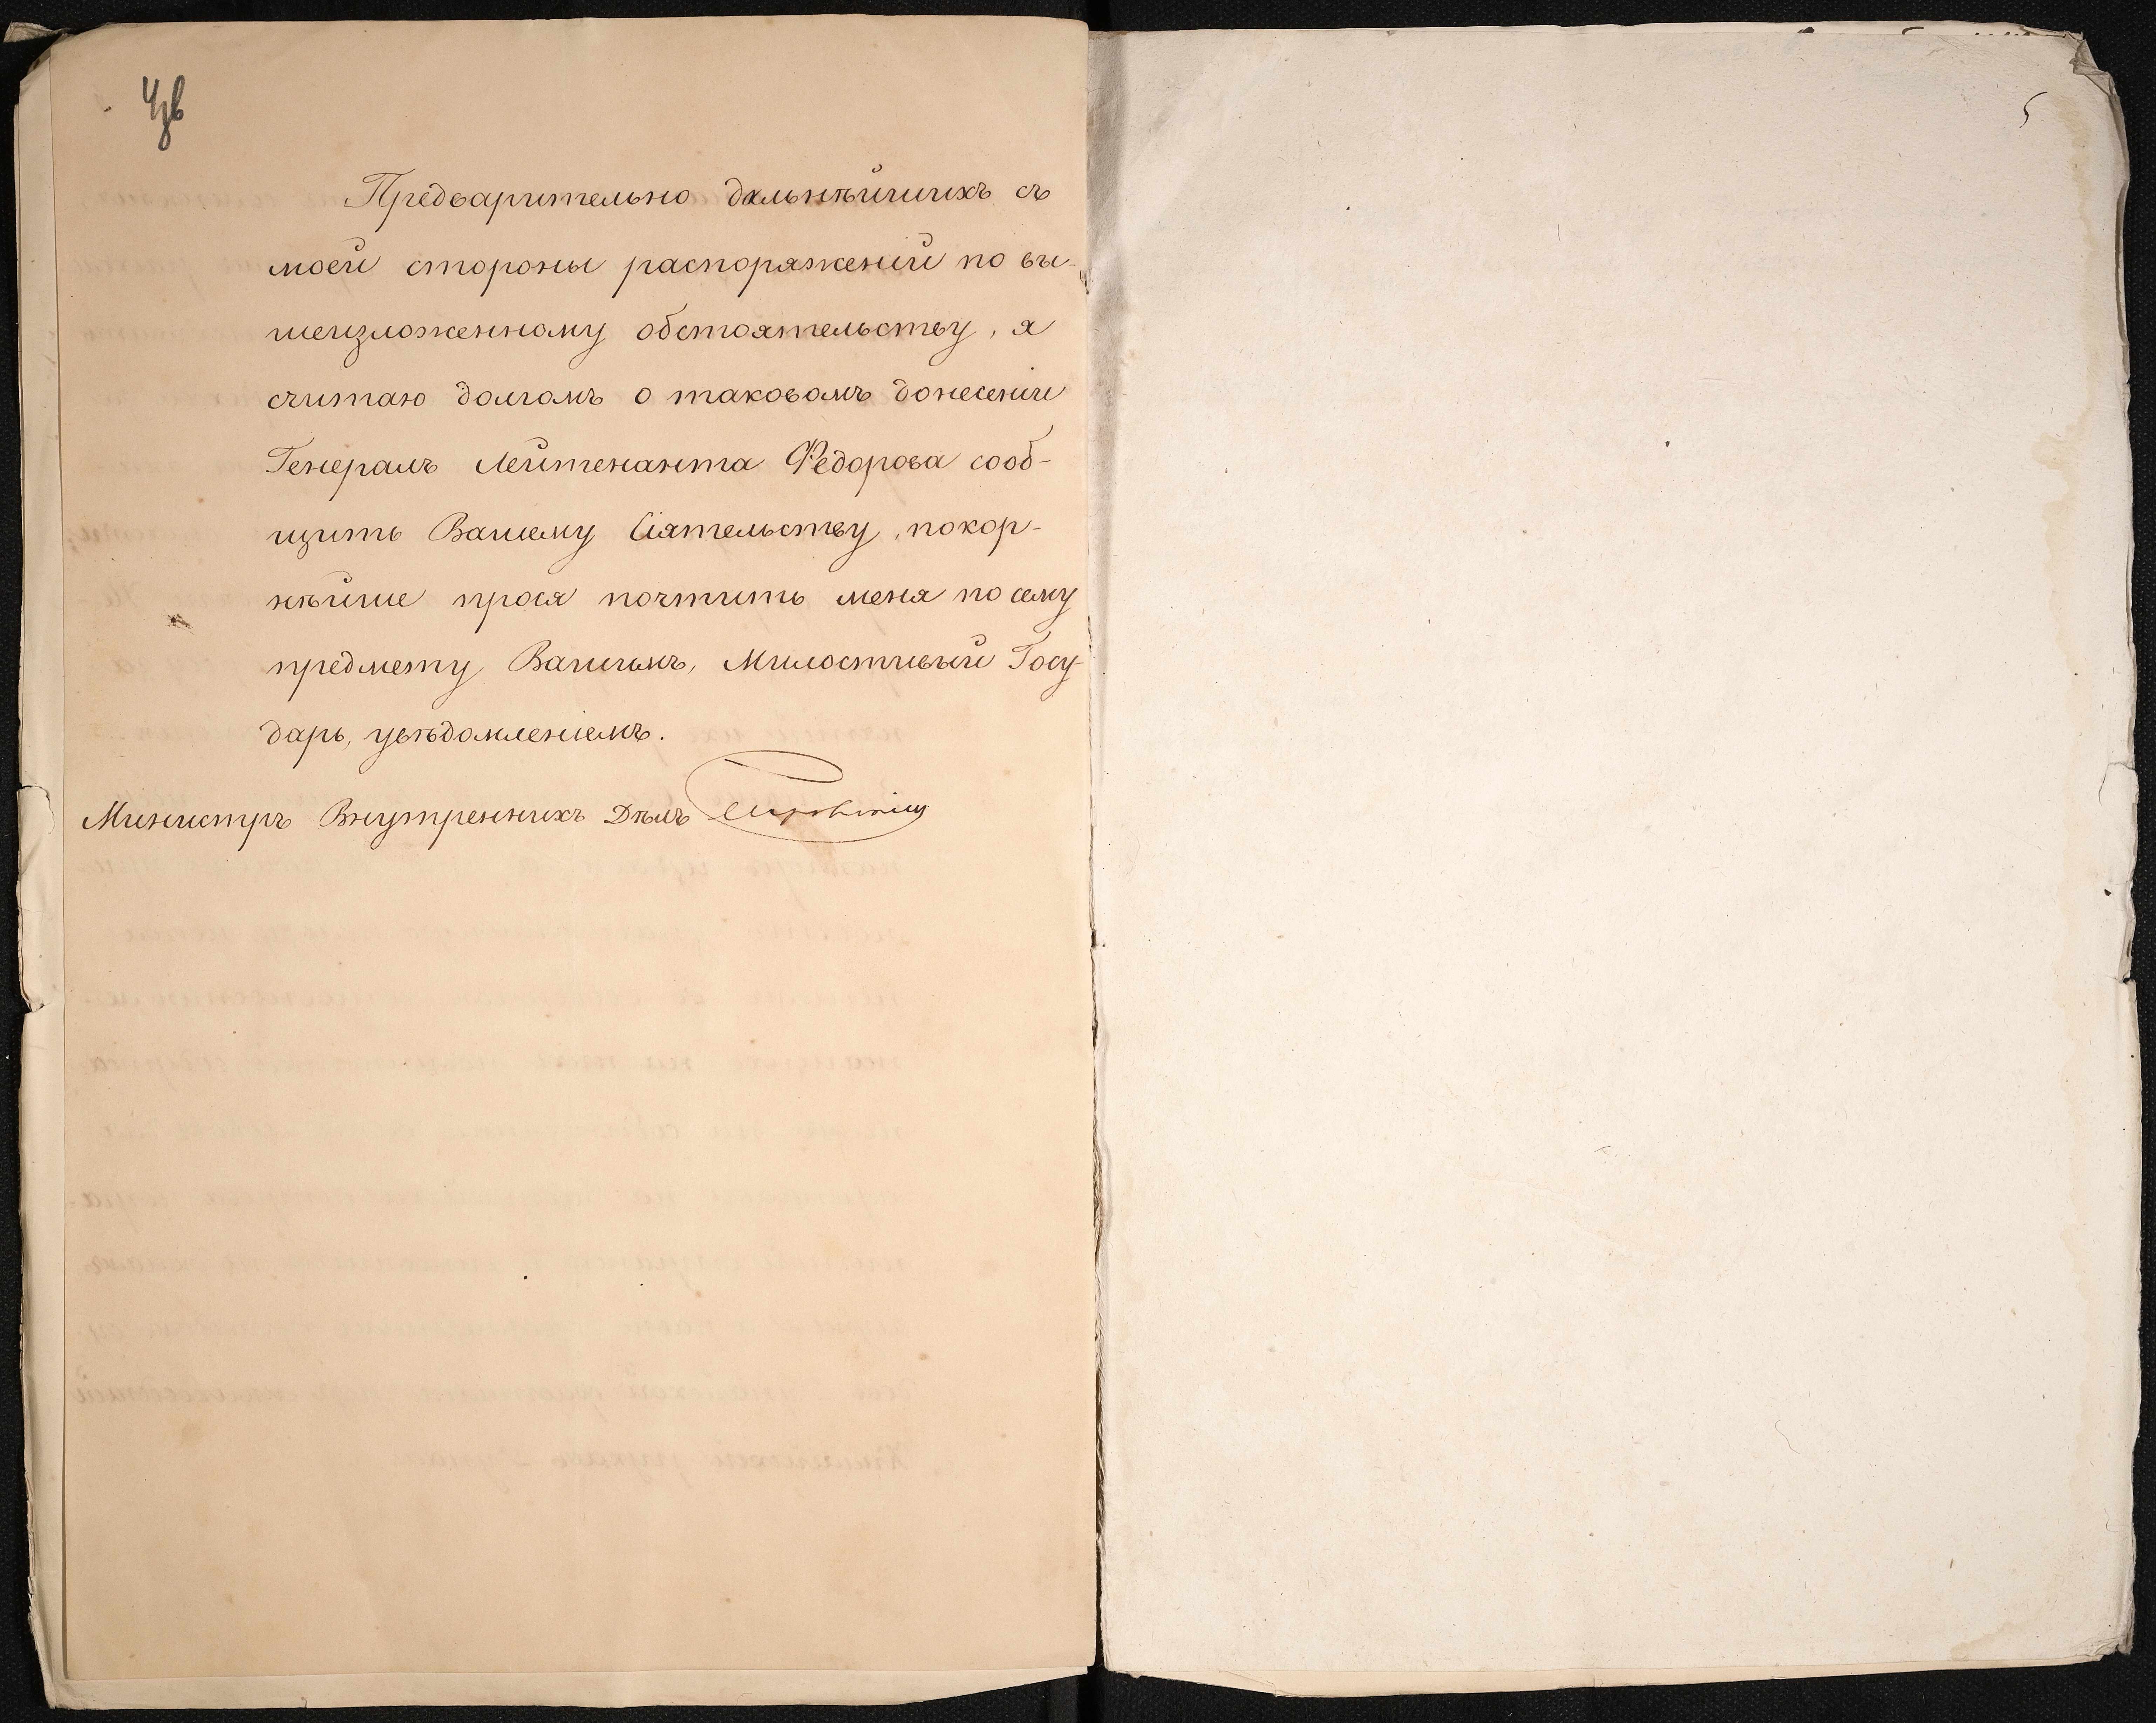 Предварительно дальнѣйшихъ съ
моей стороны распоряженій по вы-
шеизложенному обстоятельству, я
считаю долгомъ о таковомъ донесеніи
Генералъ Лейтенанта Ѳедорова сооб-
щить Вашему Сіятельству, покор-
нѣйше прося почтить меня по сему
предмету Вашимъ, Милостивый Госу-
дарь, увѣдомленіемъ.
Министръ Внутреннихъ Дѣлъ
5